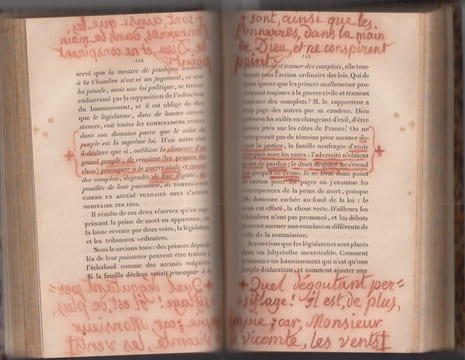 sont, ainsi que les
tonnerres, dans la main
de Dieu, et ne conspirent
point
servé que la mesure de
à la Chambre n'est ni un jugement, ni une
loi pénale, mais une loi politique, se trouve
embarrassé par la supposition de l'infraction
du bannissement, et il est obligé de dire
que le législateur, dans de hautes circons-
tances, voit toutes les considérations
dans son domaine parce que le salut du
peuple est la suprême loi. D'un autre côté
il déclare que si, oubliant la clémence d'un
grand peuple, ils venaient (les princes dé-
chus) provoquer à la guerre civile et tramer
des complots, dégradés de leur dignité, dé-
pouillés de leur puissance, ILS TOMBERAIENT
COMME UN ACCUSÉ VULGAIRE SOUS L'ACTION
ORDINAIRE DES LOIS.
Il résulte de ces deux réserves qu'en sup-
primant la peine de mort en apparence, on
la laisse revenir par deux voies, la législature
et les tribunaux ordinaires.
Nous le savions tous: des princes dépouil-
lés de leur puissance peuvent être traînés à
l'échafaud comme des accusés vulgaires.
Si la famille déchue venait provoquer à
et tramer des complots, elle tom-
berait sous l'action ordinaire des lois. Qui de
nous ignore que les princes malheureux pro-
voquent toujours à la guerre civile et trament
toujours des complots? M. le rapporteur a
trop jugé des autres par sa candeur. Dieu
préserve les exilés en changeant d'exil, d'être
jamais jetés sur les côtes de France! On ne
manquerait pas de témoins pour accuser de-
vant la justice, la famille naufragée d'avoir
conspiré avec les vents: l'adversité n'obtient
point de pardon; le droit de grâce ne s'étend
pas jusqu'à ce crime. Je ne lirai donc point
sur ces pages où j'examine les
conséquences de la peine de mort, puisque
elle demeure cachée au fond de la loi: le
mot est effacé, la chose reste. D'ailleurs les
Chambres n'ont pas prononcé, et les débats
peuvent amener une conclusion différente de
celle de la commission.
Je conviens que les législateurs sont placés
dans un labyrinthe inextricable. Comment
prononcer un bannissement qui n'est qu'une
simple déclaration, et comment ajouter une
+ Quel dégoûtant per=
siflage! Il est, de plus,
car, Monsieur
vicomte, les vents+